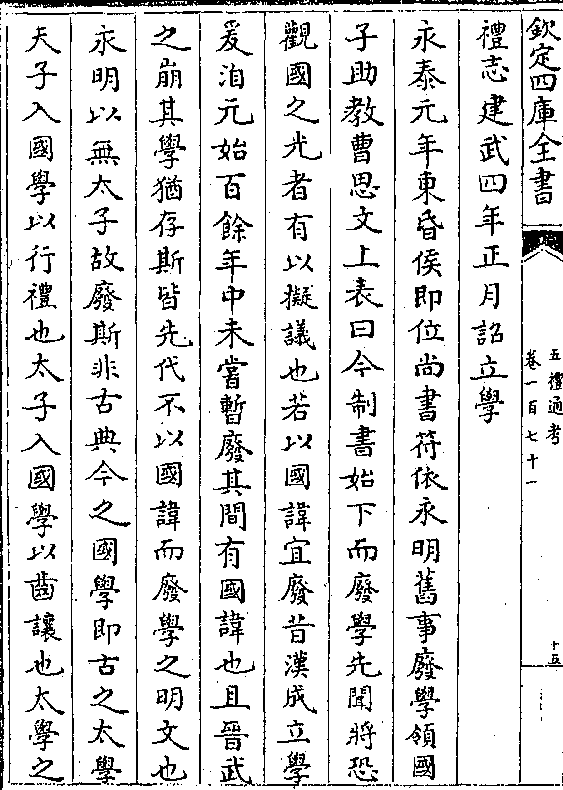 欽定四庫全書
五禮通考
卷一百七十一
十五
禮志建武四年正月詔立學
永泰元年東昏侯即位尚書符依永明舊事廢學領國
子助教曹思文上表曰今制書始下而廢學先聞將恐
觀國之光者有以擬議也若以國諱宜廢昔漢成立學
爰洎元始百餘年中未嘗暫廢其間有國諱也且晉武
之崩其學猶存斯皆先代不以國諱而廢學之明文也
永明以無太子故廢斯非古典今之國學即古之太學
天子入國學以行禮也太子入國學以齒讓也太學之